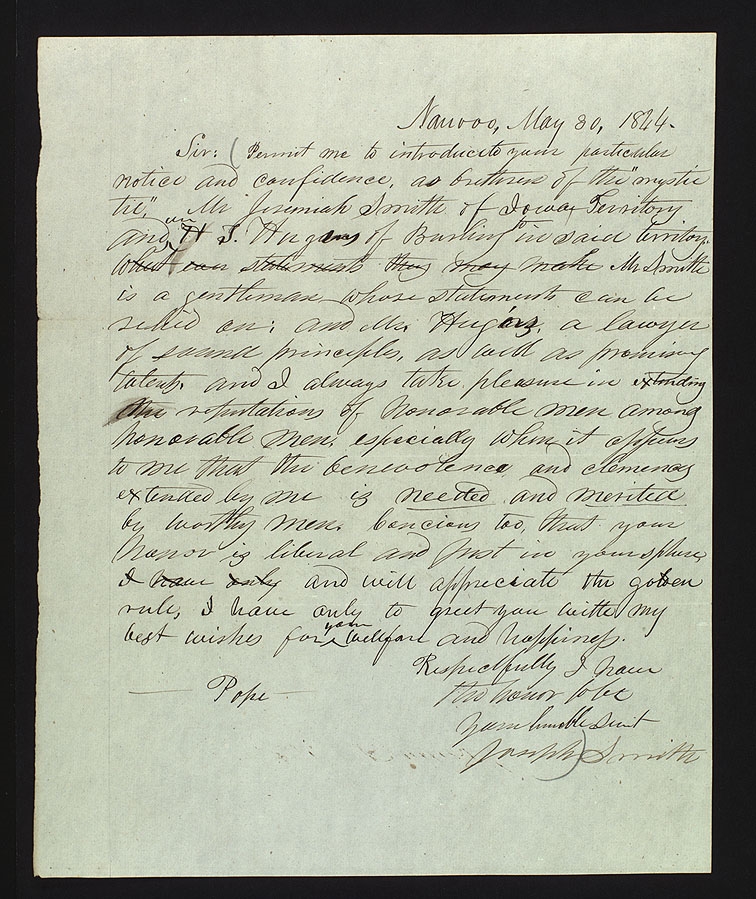 Nauvoo, May 30, 1844.
Sir: (Permit me to introduce to your particular
notice and confidence, as brethren of the "mystic
tie," Mr Jeremiah Smith of Iowa Territory
and H. T. Hugins of Burlingtn in said territory.
what ever statements they may make Mr Smith
is a gentleman whose statements can be
relied on; and Mr. Hugins, a lawyer
of sound principles, as well as promising
talents. and I always take pleasure in extending
the reputations of honorable men among
honorable men; especially when it appears
to me that the benevolence and clemency
extended by me is needed and merited
by worthy men. Concious too, that your
honor is liberal and just in your sphere,
I have only and will appreciate the golden
rule, I have only to greet you with my
best wishes for your welfare and happiness.
Respectfully I have
the honor to be
your humble Servt
Joseph) Smith
— Pope —